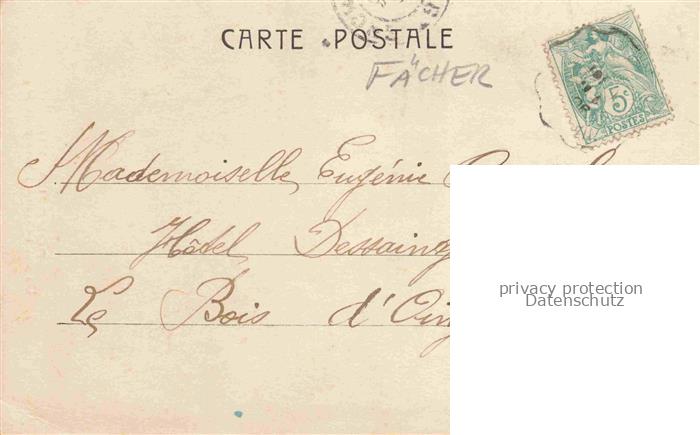 CARTE POSTALE
FÄCHER
5c
POSTES
Mademoiselle Eugénie
Hôtel Dessaint
Le Bois d'Oing
privacy protection
Datenschutz